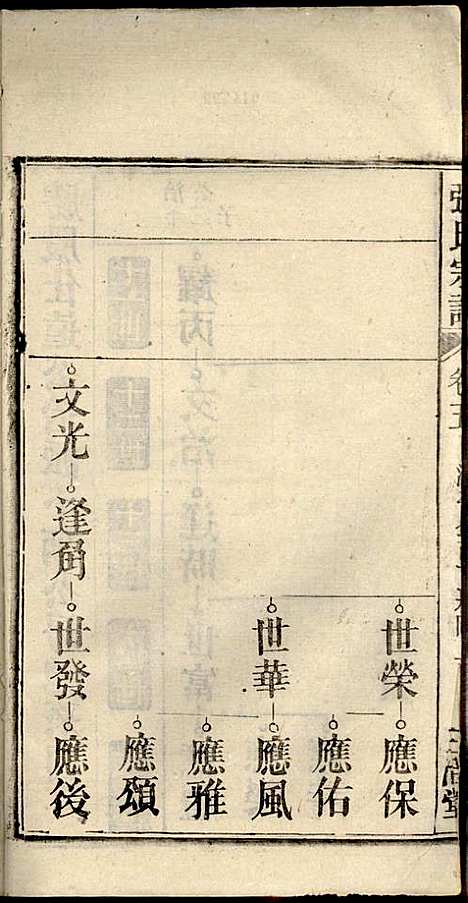 張氏宗譜
卷五
三省堂
世榮 應保
應佑
世華 應風
應雅
應頌
文光 逢角 世發 應後